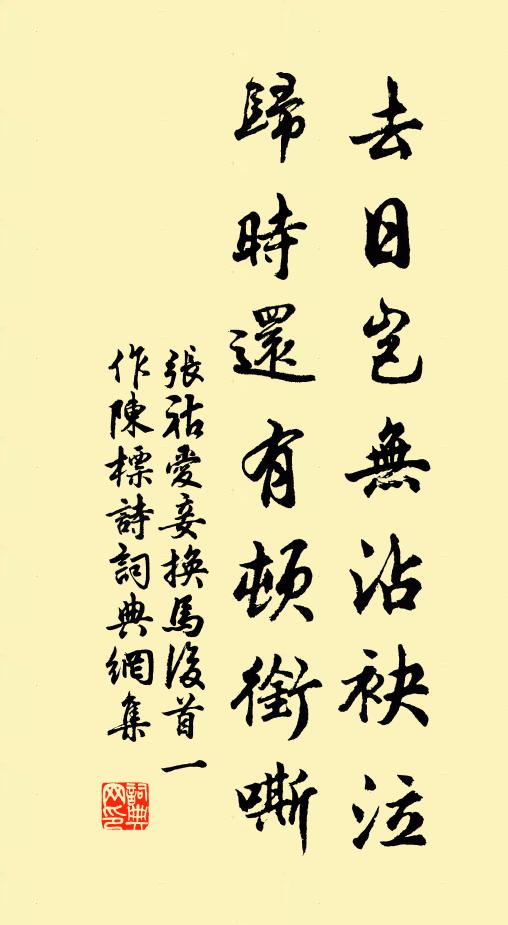 去日豈無沾袂泣
歸時還有頓銜嘶
張祜愛妾換馬後首一
作陳標詩詞典網集
詞典
网印